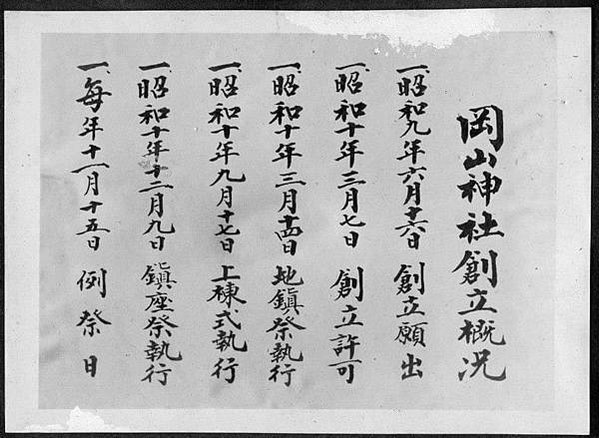 岡山神社創立概況
一、昭和九年六月十六日 創立願出
一、昭和十年三月七日 創立許可
一、昭和十年三月十四日 地鎭祭執行
一、昭和十年九月十七日 上棟式執行
一、昭和十年十二月九日 鎭座祭執行
一、每年十一月十五日 例祭日